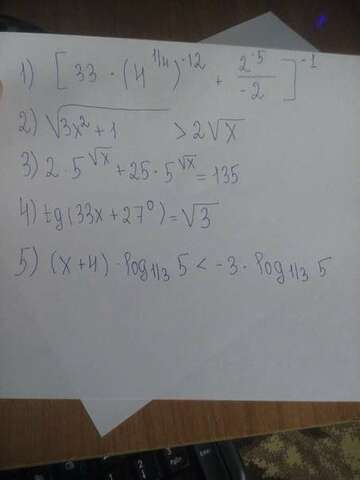 1) [33 · (4^{1/4})^{-12} + \frac{2^{-5}}{-2}]^{-1}
2) √(3x² + 1) > 2√x
3) 2 · 5^{√x} + 25 · 5^{√x} = 135
4) tg(33x + 27°) = √3
5) (x+4) · log_{1/3} 5 < -3 · log_{1/3} 5